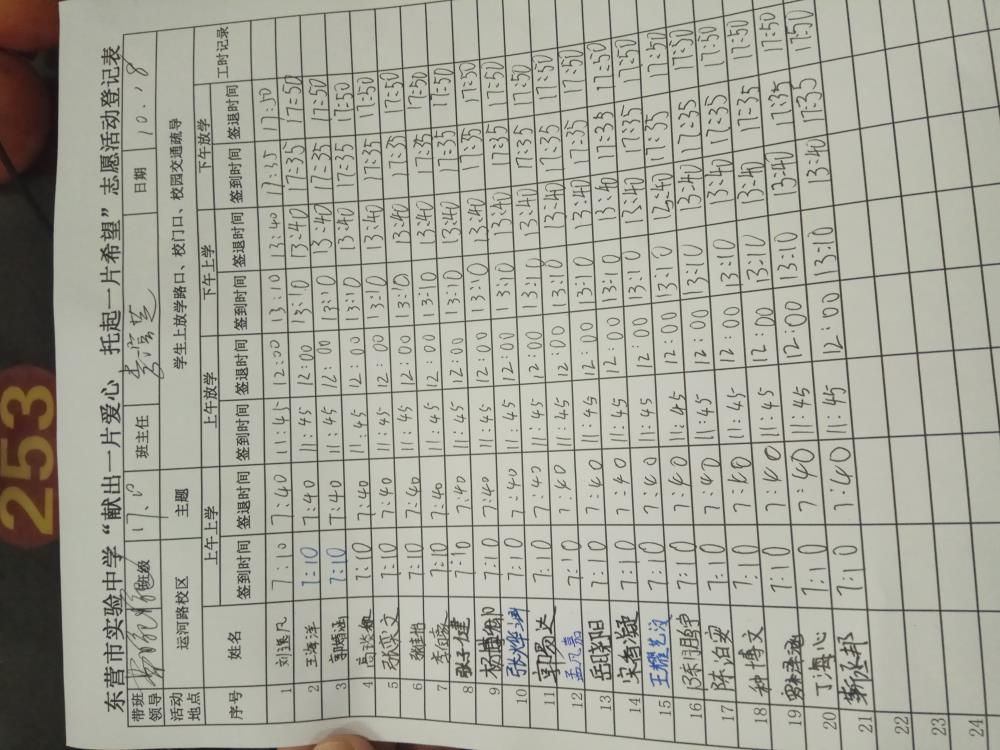 东营市实验中学“献出一片爱心 托起一片希望”志愿活动登记表
带班领导 班级 17.5 班主任 日期 10.18
活动地点 运河路校区 主题 学生上放学路口、校门口、校园交通疏导
序号 姓名 上午上学 上午放学 下午上学 下午放学 工时记录
签到时间 签退时间 签到时间 签退时间 签到时间 签退时间 签到时间 签退时间
1 刘逸凡 7:10 7:40 11:45 12:00 13:10 13:40 17:35 17:50
2 王海洋 7:10 7:40 11:45 12:00 13:10 13:40 17:35 17:50
3 郭婧涵 7:10 7:40 11:45 12:00 13:10 13:40 17:35 17:50
4 7:10 7:40 11:45 12:00 13:10 13:40 17:35 17:50
5 张栾文 7:10 7:40 11:45 12:00 13:10 13:40 17:35 17:50
6 7:10 7:40 11:45 12:00 13:10 13:40 17:35 17:50
7 7:10 7:40 11:45 12:00 13:10 13:40 17:35 17:50
8 耿子健 7:10 7:40 11:45 12:00 13:10 13:40 17:35 17:50
9 7:10 7:40 11:45 12:00 13:10 13:40 17:35 17:50
10 7:10 7:40 11:45 12:00 13:10 13:40 17:35 17:50
11 郭易达 7:10 7:40 11:45 12:00 13:10 13:40 17:35 17:50
12 孟凡嘉 7:10 7:40 11:45 12:00 13:10 13:40 17:35 17:50
13 岳晓阳 7:10 7:40 11:45 12:00 13:10 13:40 17:35 17:50
14 7:10 7:40 11:45 12:00 13:10 13:40 17:35 17:50
15 7:10 7:40 11:45 12:00 13:10 13:40 17:35 17:50
16 陈鹏宇 7:10 7:40 11:45 12:00 13:10 13:40 17:35 17:50
17 陈泊安 7:10 7:40 11:45 12:00 13:10 13:40 17:35 17:50
18 种博文 7:10 7:40 11:45 12:00 13:10 13:40 17:35 17:50
19 7:10 7:40 11:45 12:00 13:10 13:40 17:35 17:50
20 丁海心 7:10 7:40 11:45 12:00 13:10 13:40 17:35 17:50
21 靳丞邦 7:10 7:40 11:45 12:00 13:10 13:40 17:35 17:50
22
23
24
253